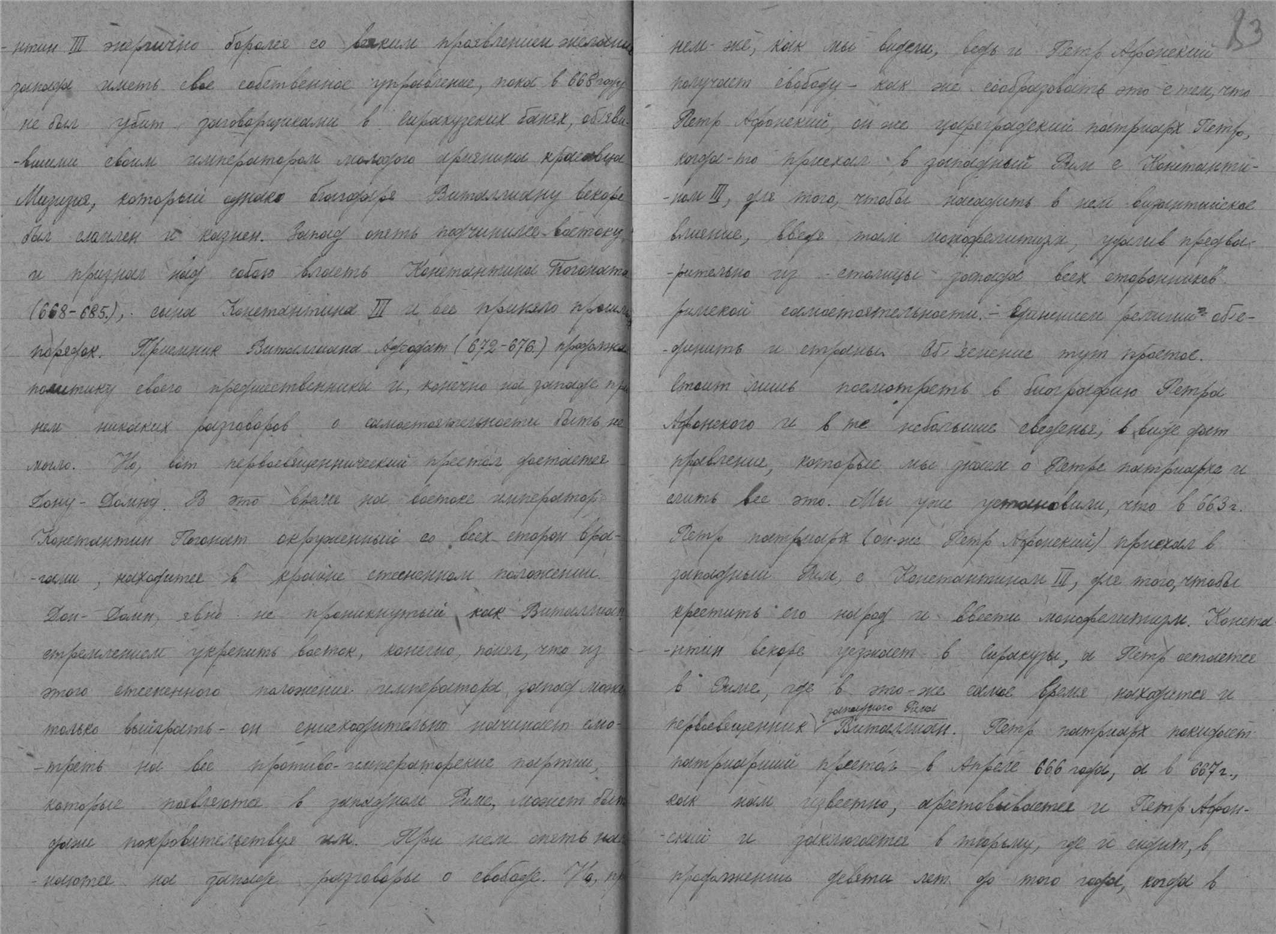 -нтин III энергично боролся со всяким проявлением желания
запада иметь свое собственное управление, пока в 668 году
не был убит заговорщиками в Сиракузских банях, объяви-
-вшими своим императором молодого армянина красавца
Мизизия, который однако благодаря Виталлиану вскоре
был сломлен и казнен. Запад опять подчинился востоку,
и признал над собою власть Константина Погоната
(668-685), сына Константина III и все приняло прошлый
порядок. Приемник Виталлиана Адеодат (672-676) продолжал
политику своего предшественника и, конечно на западе при
нем никаких разговоров о самостоятельности быть не
могло. Но, вот первосвященнический престол достается
Дону-Домну. В это время на востоке император
Константин Погонат окруженный со всех сторон вра-
-гами, находится в крайне стесненном положении.
Дон-Домн, явно не проникнутый как Виталлиан
стремлением укрепить восток, конечно, понял, что из
этого стесненного положения императора, запад может
только выиграть - он снисходительно начинает смо-
-треть на все противо-императорские партии,
которые появляются в западном Риме, может быть
даже покровительствуя им. При нем опять нач-
-наются на западе разговоры о свободе. Но, при
83
нем-же, как мы видели, ведь и Петр Афонский
получает свободу - как же сообразовать это с тем, что
Петр Афонский, он же цареградский патриарх Петр,
когда-то приехал в западный Рим с Константи-
-ном III, для того, чтобы насадить в нем византийское
влияние, введя там монофелитизм, удалив предва-
-рительно из столицы запада всех сторонников
римской самостоятельности. - Единением религии об'е-
-динить и страны. Об'яснение тут простое.
Стоит лишь посмотреть в биографию Петра
Афонского и в те небольшие сведенья, в виде дат
правления, которые мы знаем о Петре патриархе и
слить все это. Мы уже установили, что в 663 г.
Петр патриарх (он-же Петр Афонский) приехал в
западный Рим, с Константином III, для того, чтобы
крестить его народ и ввести монофелитизм. Конста-
-нтин вскоре уезжает в Сиракузы, а Петр остается
в Риме, где в это-же самое время находится и
первосвященник западного Рима Виталлиан. Петр патриарх покидает
патриарший престол в Апреле 666 года, а в 667 г.,
как нам известно, арестовывается и Петр Афон-
-ский и заключается в тюрьму, где и сидит, в
продолжении девяти лет до того года, когда в